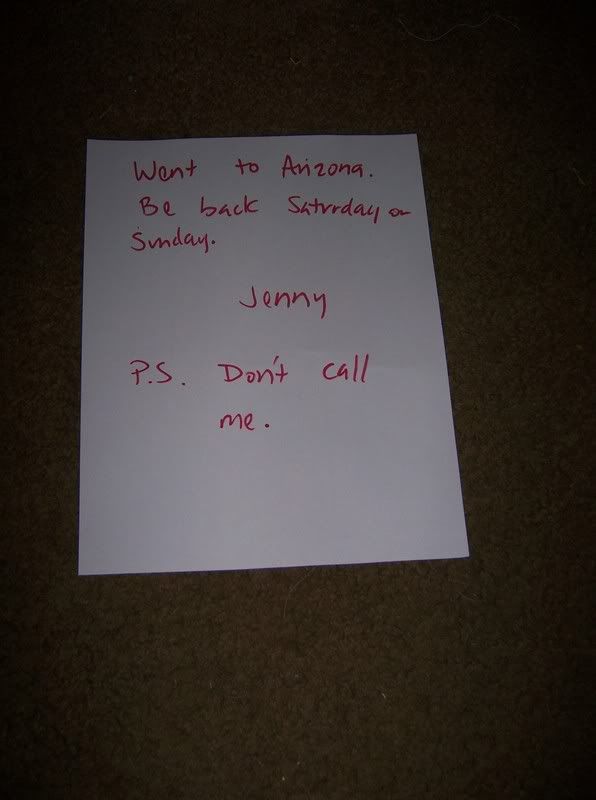 Went to Arizona.
Be back Saturday or
Sunday.
Jenny
P.S. Don't call
me.